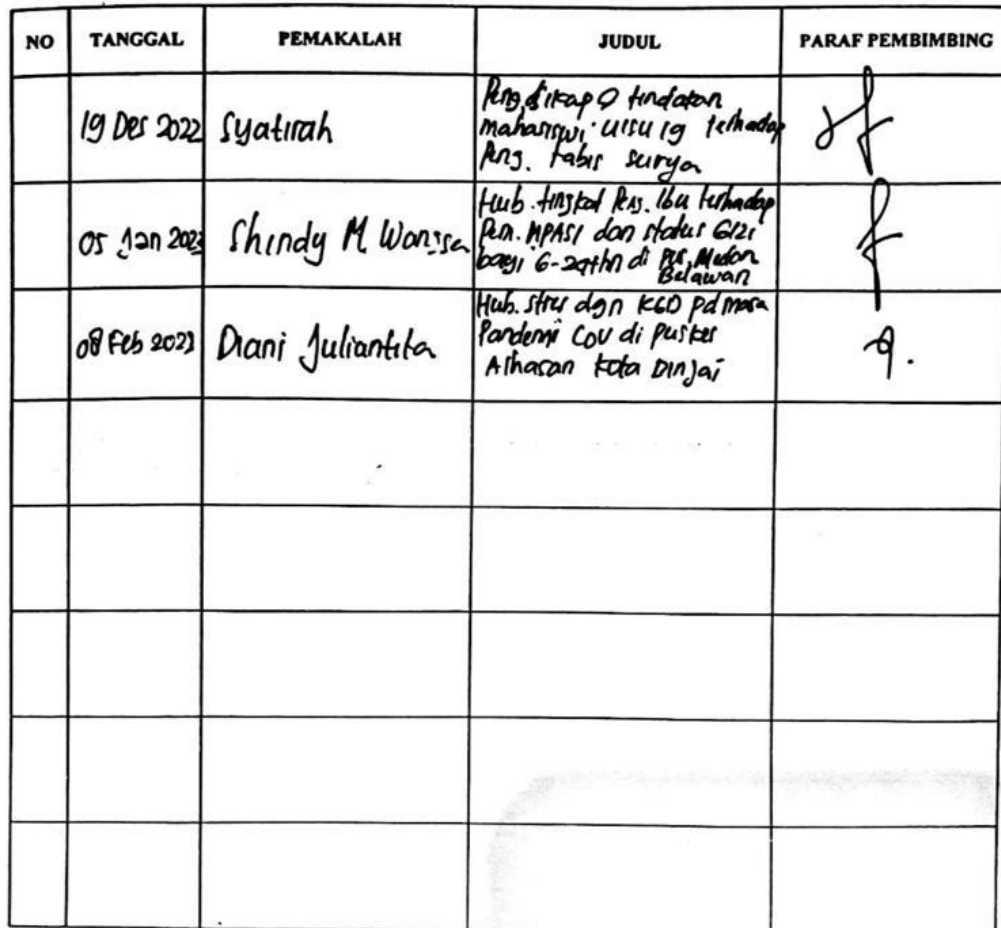 NO TANGGAL PEMAKALAH JUDUL PARAF PEMBIMBING
19 Des 2022 Syatirah
Peng, sikap & tindakan
mahasiswi uisu 19 terhadap
Peng. tabir surya
05 Jan 2023 Shindy M
Hub. tingkat Peng. Ibu terhadap
Pem. MPASI dan status Gizi
bayi 6-24thn di Medan
Belawan
08 Feb 2023 Diani Juliantita
Hub. stres dgn KGD pd masa
Pandemi Cov di puskes
Kota Binjai